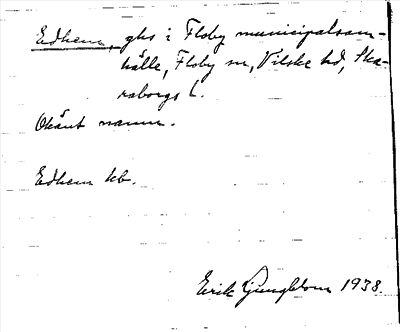 Edhem, ghs i Floby municipalsam-
hälle, Floby sn, Vilske hd, Ska-
raborgs l.
Okänt namn.
Edhem kb.
Erik Ljungblom 1938.